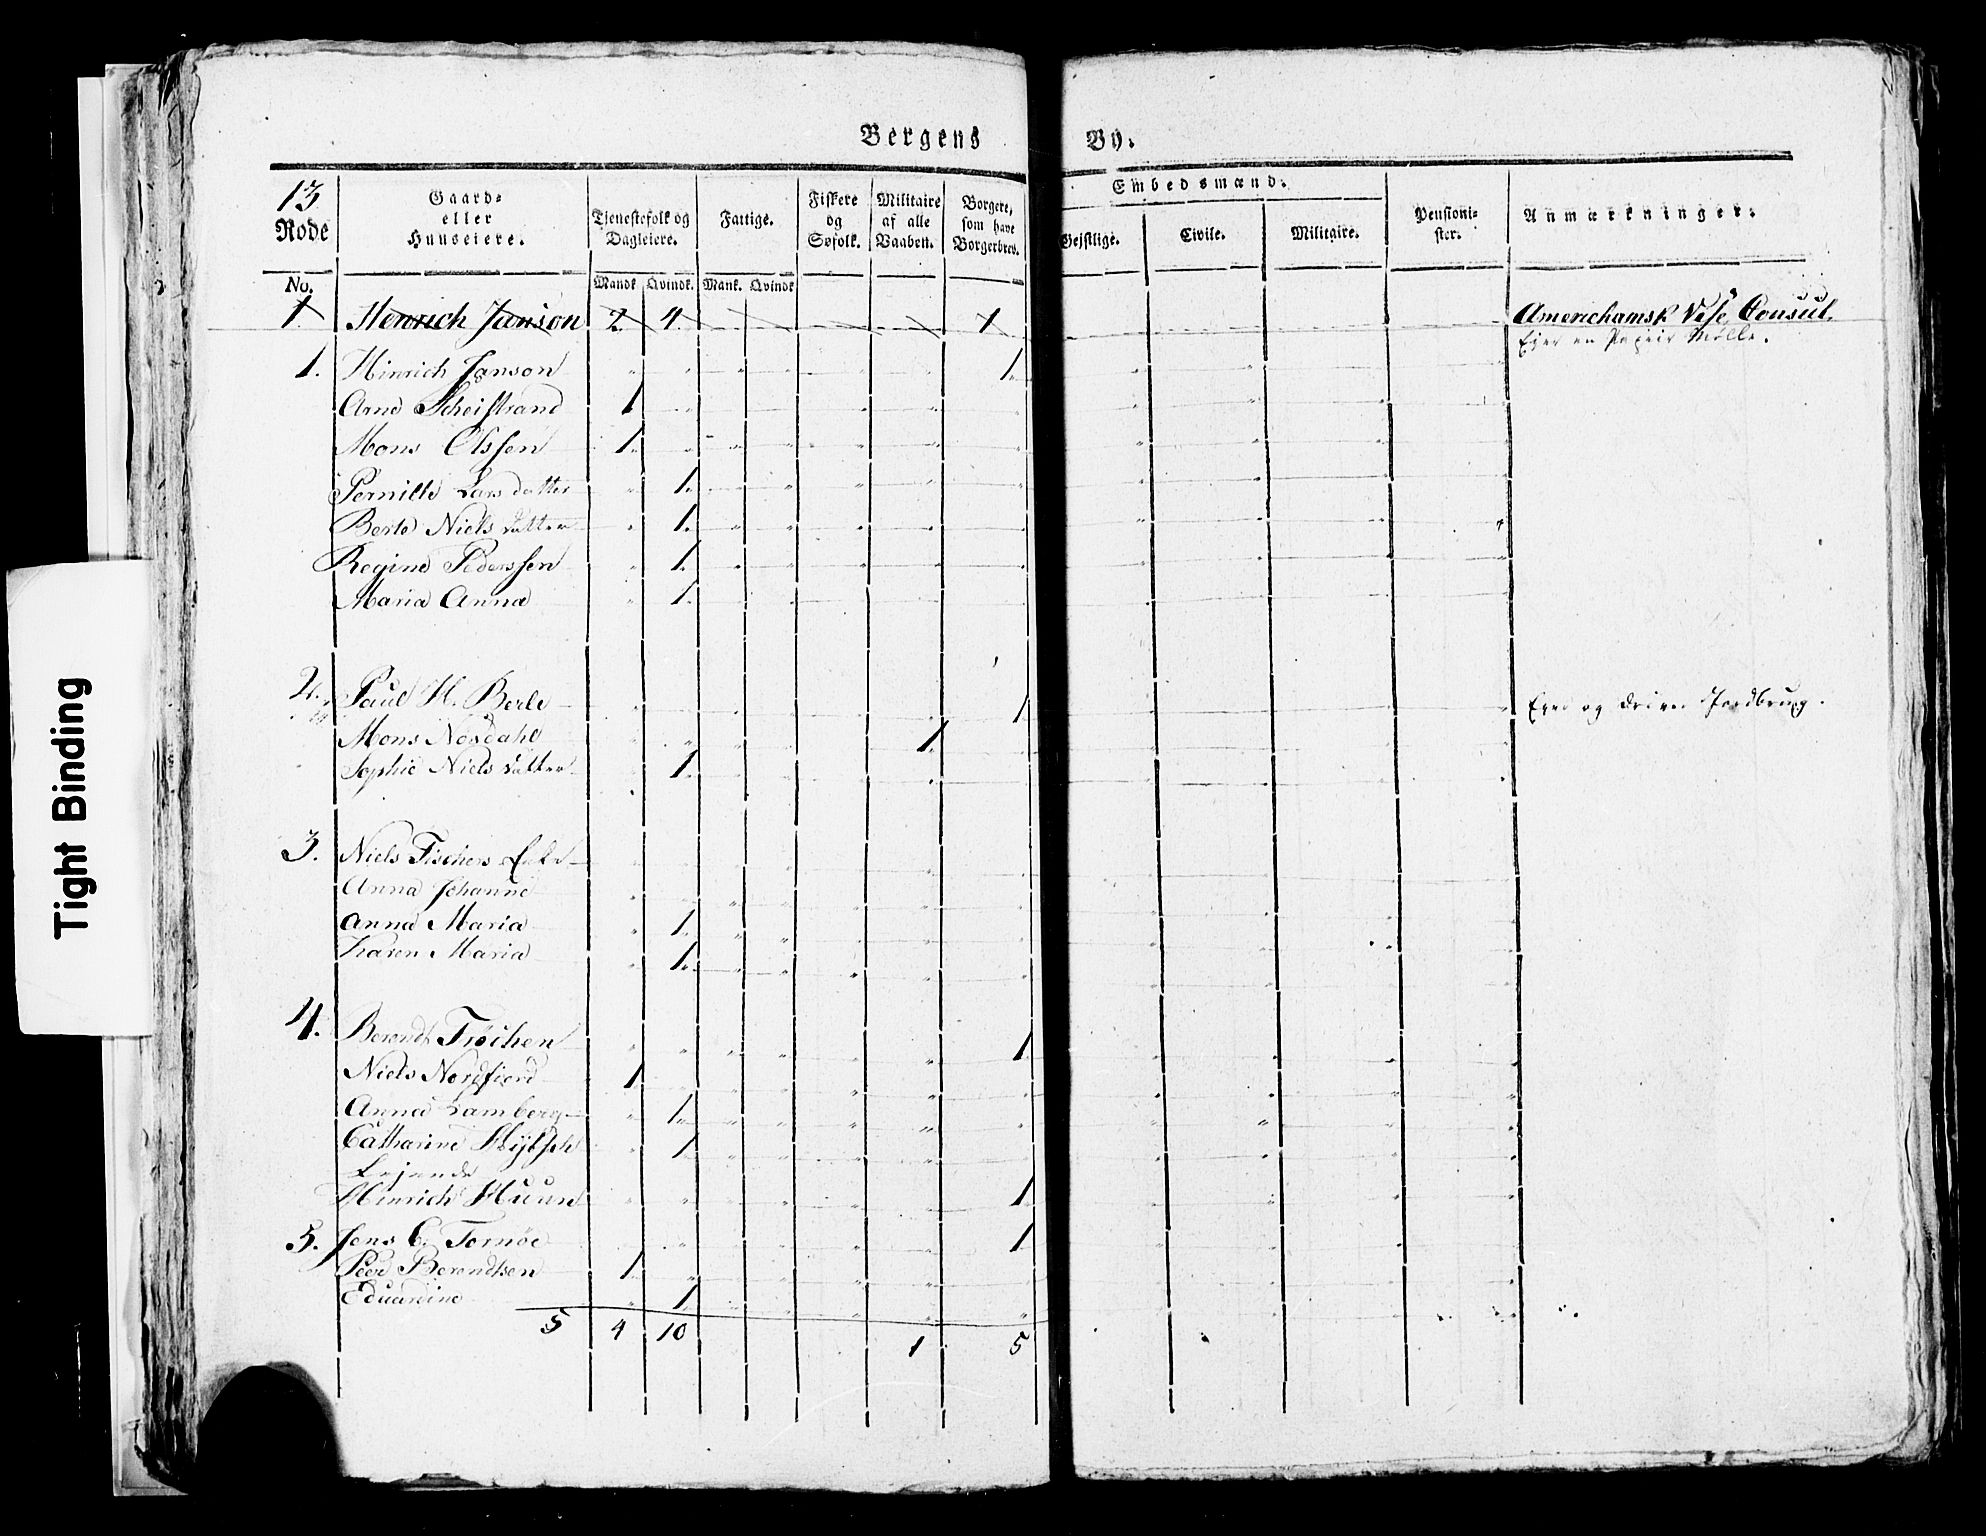 Bergens By.
13 Rode
Gaard= eller Huuseiere.
Tjenestefolk og Dagleiere.
Fattige.
Fiskere og Søfolk.
Militaire af alle Vaaben.
Borgere, som have Borgerbrev.
Embedsmænd.
Gejstlige. Civile. Militaire.
Pensioni= ster.
Anmærkninger.
No. Mandk Qvindk. Mank. Qvindk
1 Henrich Janson 2 4 1 Americhamsk Vise Consul.
Ejer en Papeir Mølle.
1. Hinrich Janson 1.
Arne Scheistrand 1
Mons Olssen 1.
Pernille Lars datter 1.
Berte Niels datter 1.
Regine Pederssen 1.
Maria Anna 1.
2. Paul H. Berle 1 Ejer og driver Jordbrug.
Mons Nøsdahl 1
Sophie Niels datter 1.
3. Niels Fischers Enke
Anna Johanne
Anna Maria 1.
Karen Maria 1.
4. Berendt Trøichen 1
Niels Nordfiord 1
Anna Lamberg 1
Catharine 1
Lejende
Hinrich Huun 1
5. Jens C. Tornøe 1
Peer Berendtsen 1
Eduardine 1
5 4 10 1 5
Tight Binding